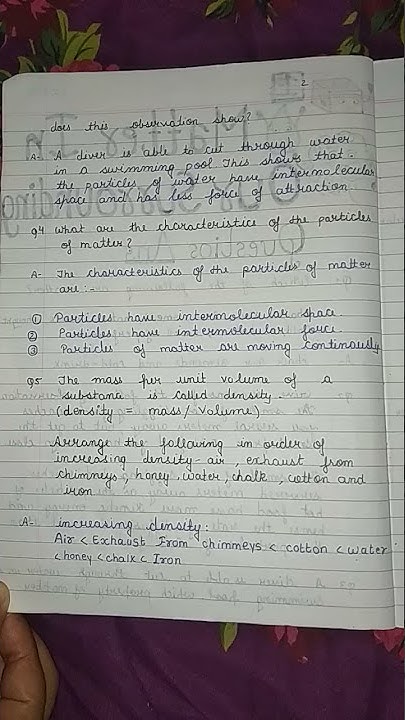 2
does this observation show?
A- A diver is able to cut through water
in a swimming pool. This shows that
the particles of water have intermolecular
space and has less force of attraction.
Q4 what are the characteristics of the particles
of matter?
A- The characteristics of the particles of matter
are :-
① Particles have intermolecular space.
② Particles have intermolecular force.
③ Particles of matter are moving continously
Q5 The mass per unit volume of a
substance is called density.
(density = mass/volume)
Arrange the following in order of
increasing density- air, exhaust from
chimneys, honey, water, chalk, cotton and
iron.
A- increasing density:
Air < Exhaust From chimneys < cotton < water
< honey < chalk < Iron